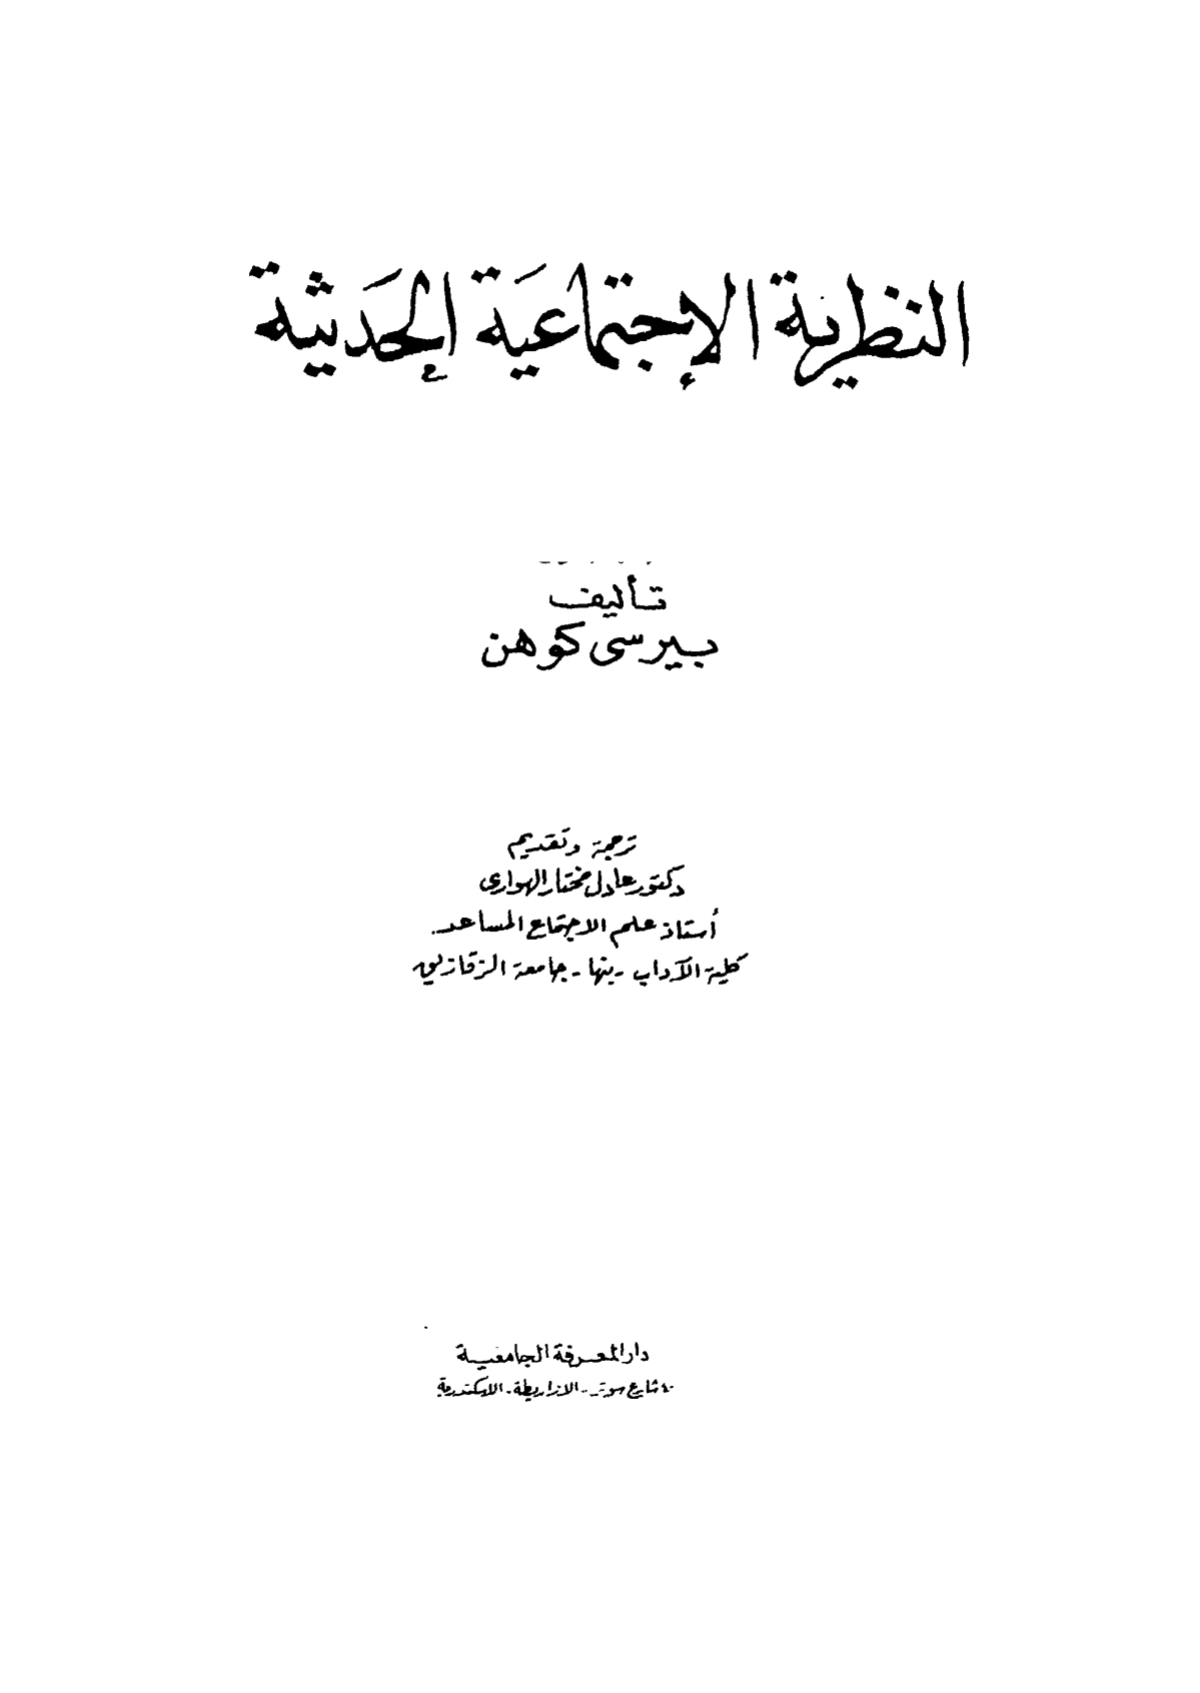 النظرية الإجتماعية الحَديثة
تأليف
بيرسى كوهن
ترجمة وتقديم
دكتور عادل مختار الهوارى
أستاذ علم الاجتماع المساعد
كلية الآداب - بنها - جامعة الزقازيق
دار المعرفة الجامعية
٤٠ شارع سوتر - الازاريطة - الاسكندرية